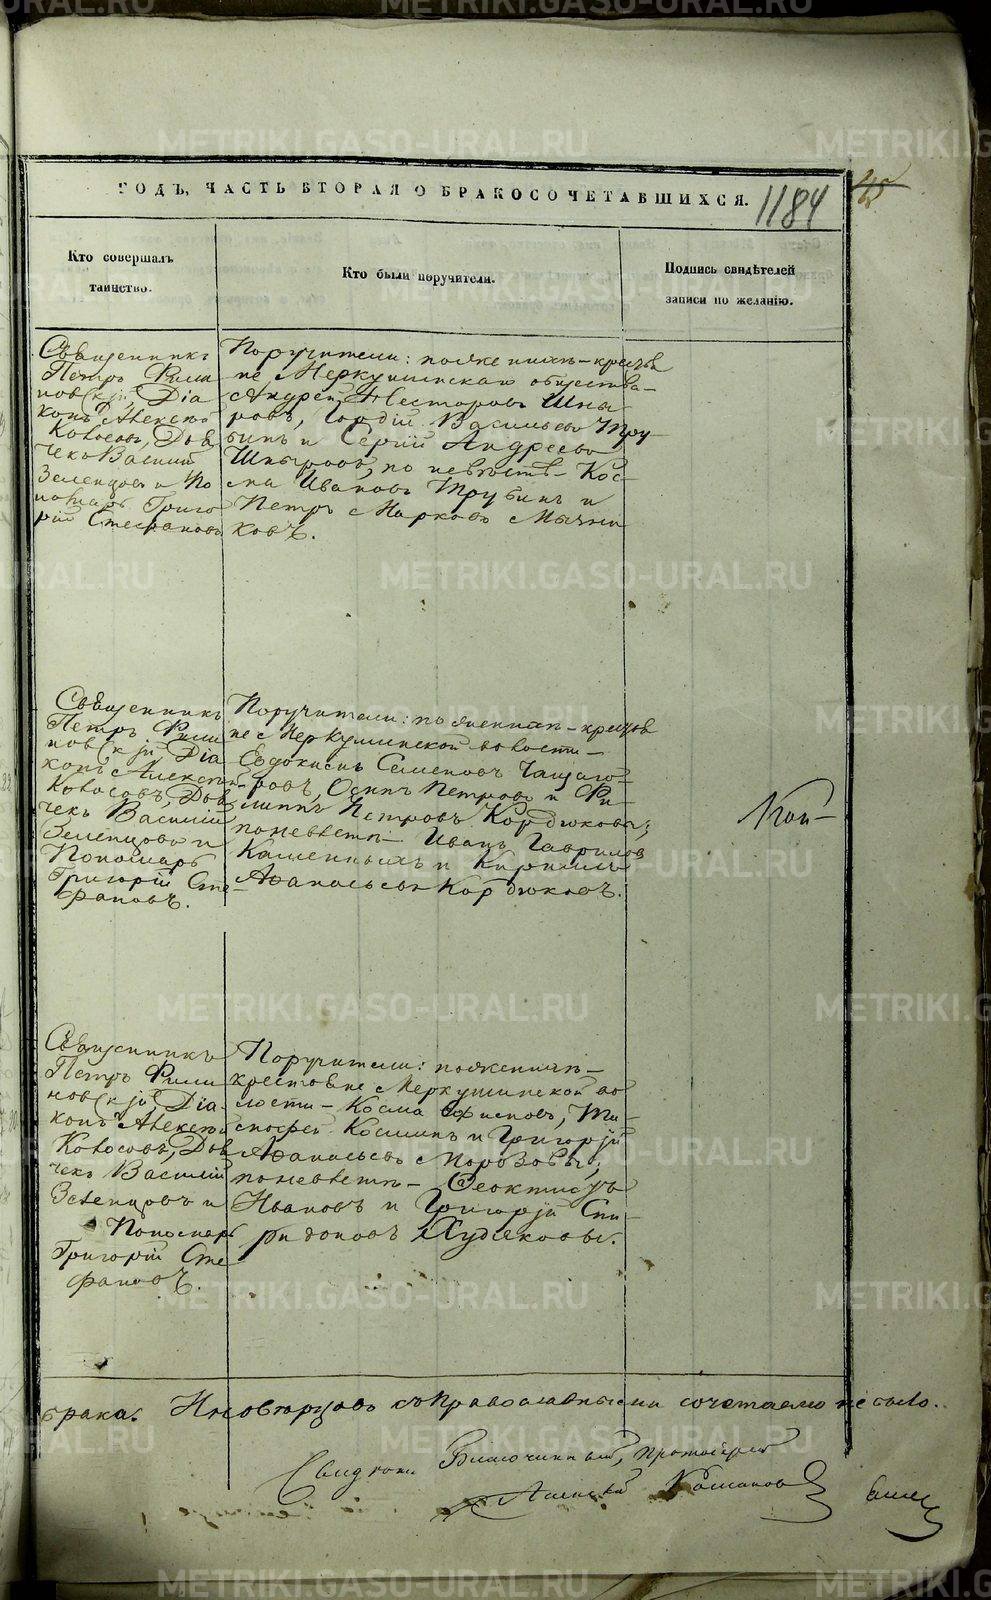 ГОДЪ, ЧАСТЬ ВТОРАЯ О БРАКОСОЧЕТАВШИХСЯ.
1184
Кто совершалъ
таинство.
Кто были поручители.
Подпись свидѣтелей
записи по желанію.
Священникъ
Петръ Рили
новскій, Діа
конъ Алексѣй
Колосовъ, Дья
чекъ Василій
Зеленцовъ и По
номарь Григо
рій Стефановъ
Поручители: по женихѣ – крестья
не Меркушинскаго общества –
Андрей Несторовъ Шны
ровъ, Гордій Васильевъ Тру
бинъ и Сергій Андреевъ
Шныровъ, по невѣстѣ Кос
ма Ивановъ Трубинъ и
Петръ Марковъ Мычни
ковъ.
Священникъ
Петръ Рили
новскій Діа
конъ Алексѣй
Колосовъ, Дья
чекъ Василій
Зеленцовъ и
Пономарь
Григорій Сте
фановъ.
Поручители: по женихѣ – крестья
не Меркушинской волости –
Евдокимъ Семеновъ Чащего
ровъ, Осипъ Петровъ и Фи
липпъ Петровъ Кордюковы;
по невѣстѣ Иванъ Гавриловъ
Каменныхъ и Кириллъ
Афанасьевъ Кордюковъ.
Священникъ
Петръ Рили
новскій Діа
конъ Алексѣй
Колосовъ, Дья
чекъ Василій
Зеленцовъ и
Пономарь
Григорій Сте
фановъ.
Поручители: по женихѣ –
крестьяне Меркушинской во
лости – Косма Ти
мофей Косминъ и Григорій
Афанасьевъ Морозовы;
по невѣстѣ – Феоктистъ
Ивановъ и Григорій Спи
ридоновъ Худяковы.
брака. Иновѣрцовъ съ православными сочетаемо не было.
Свидѣт. Благочинный, протоіерей
Алексій